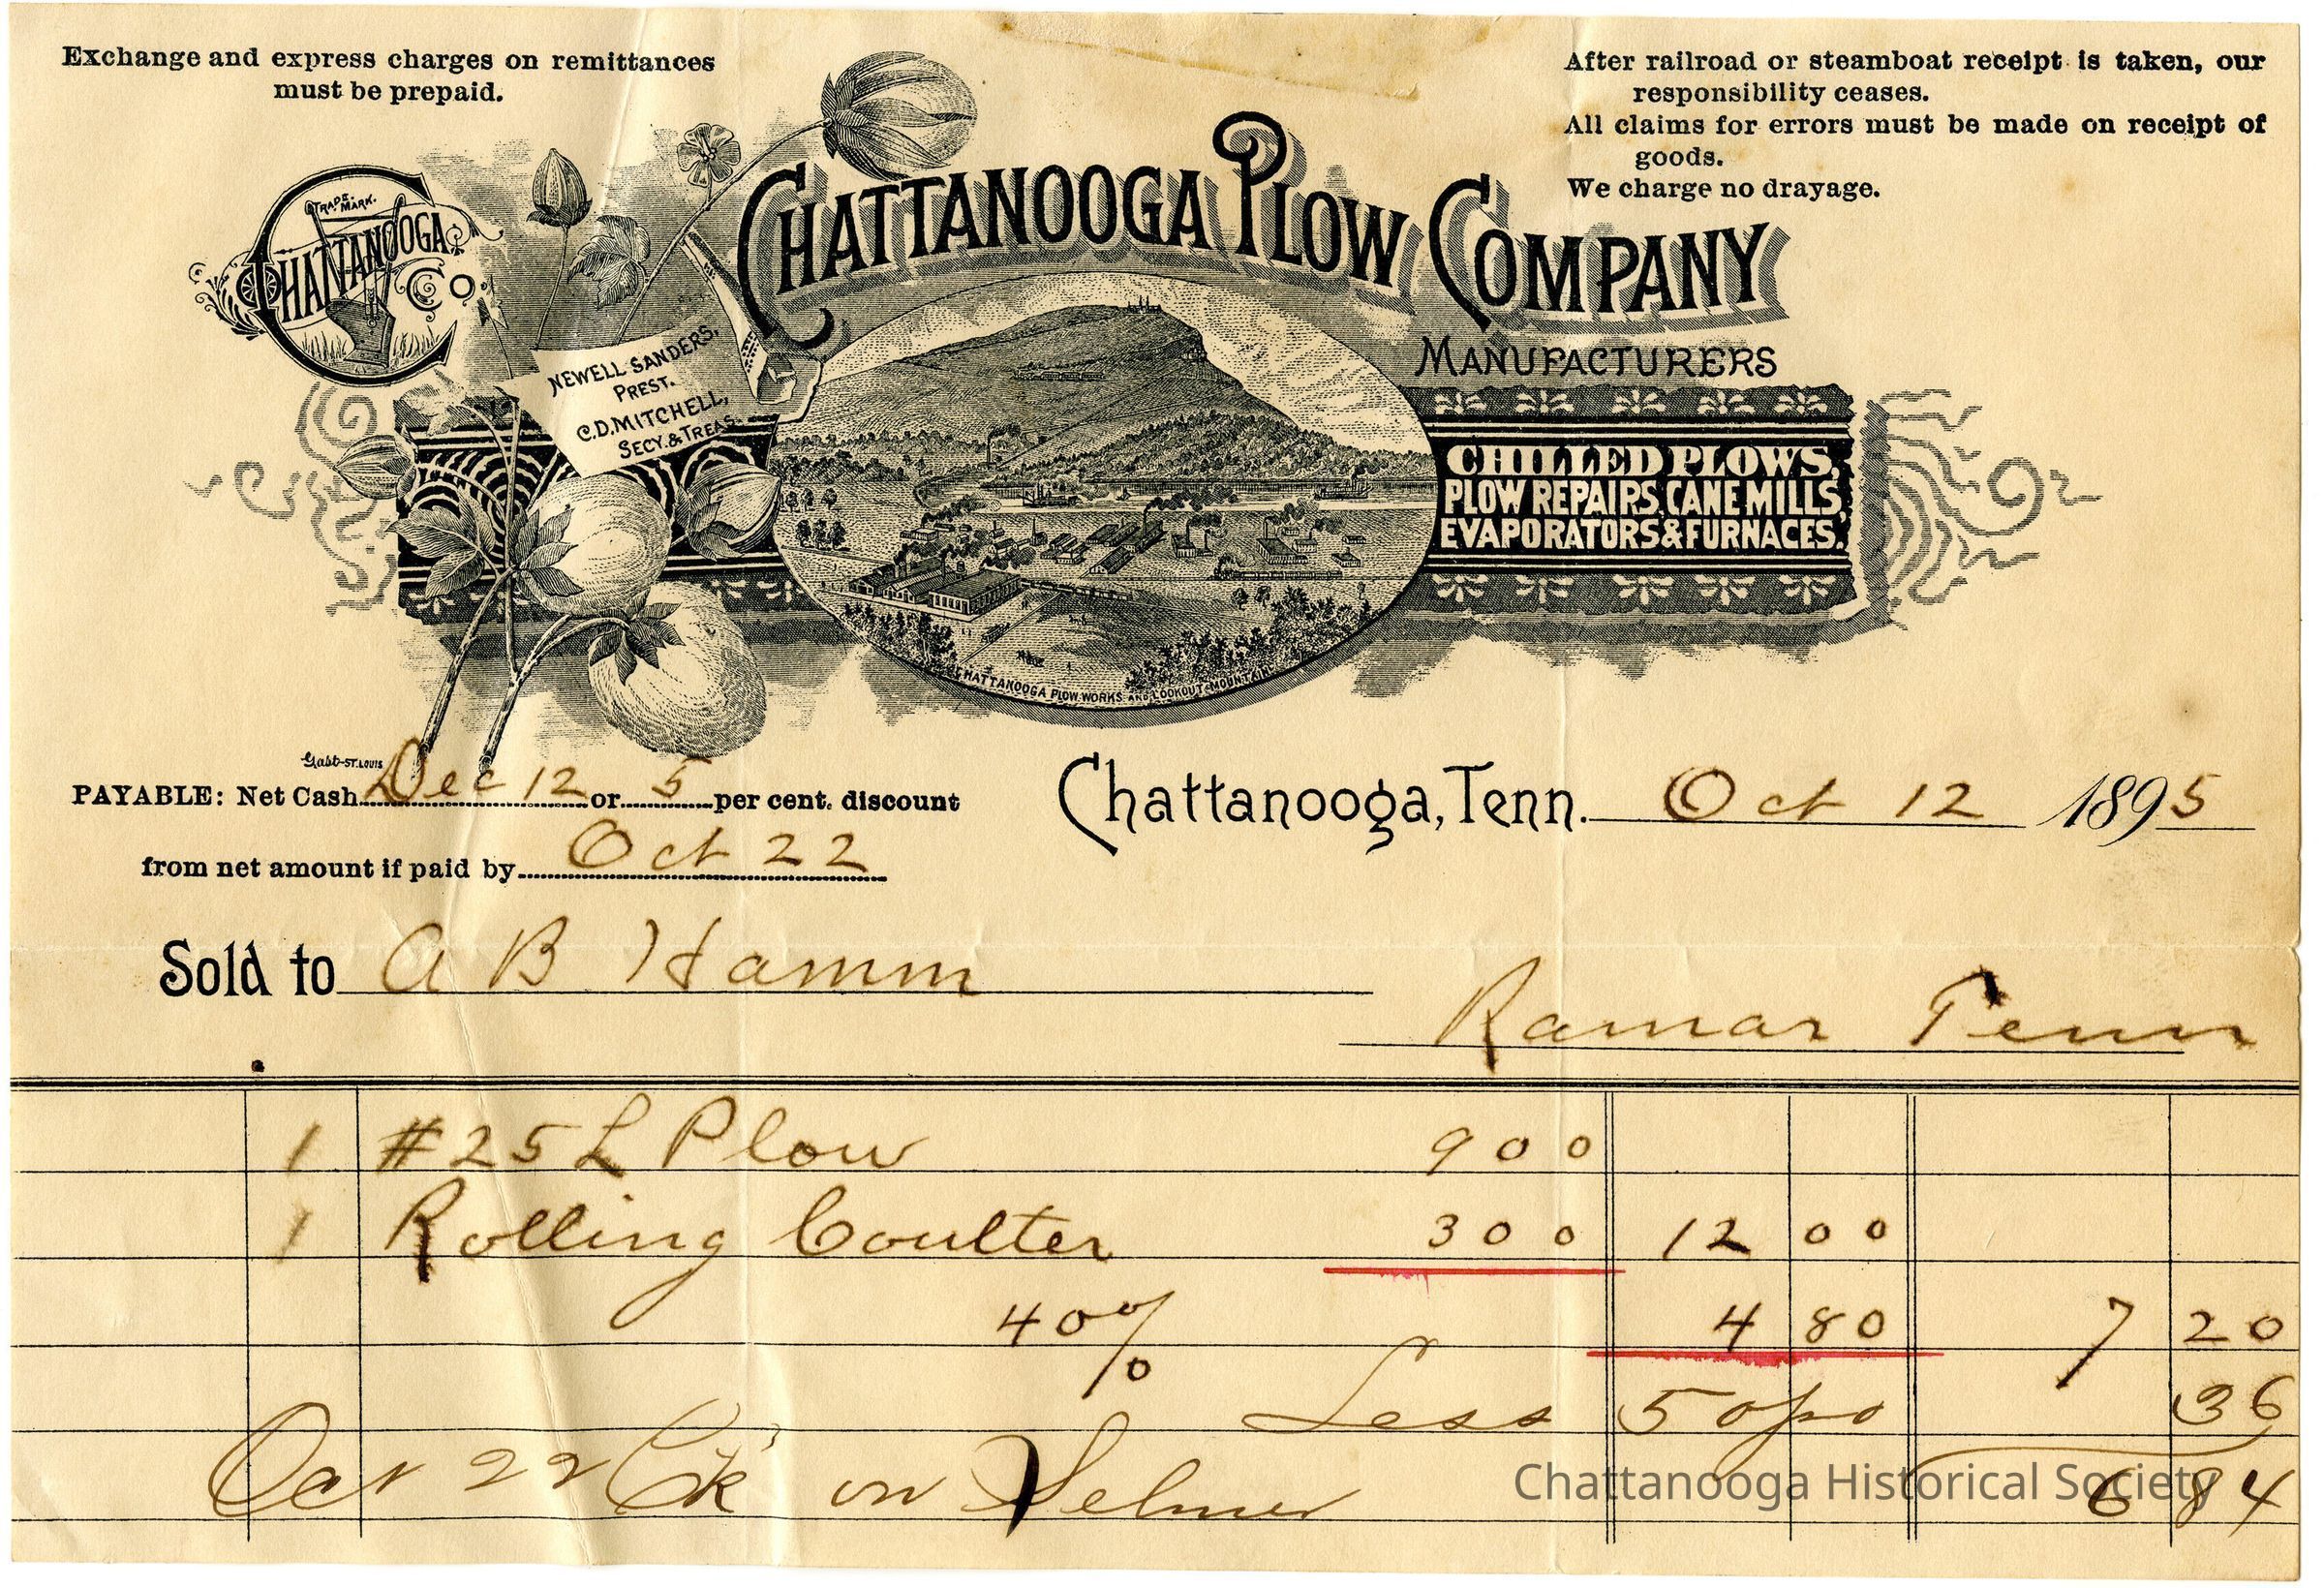 Exchange and express charges on remittances
must be prepaid.
After railroad or steamboat receipt is taken, our
responsibility ceases.
All claims for errors must be made on receipt of
goods.
We charge no drayage.
TRADE MARK.
CHATTANOOGA
CO.
CHATTANOOGA PLOW COMPANY
MANUFACTURERS
NEWELL SANDERS,
PREST.
C.D. MITCHELL,
SECY. & TREAS.
CHILLED PLOWS,
PLOW REPAIRS, CANE MILLS,
EVAPORATORS & FURNACES.
CHATTANOOGA PLOW WORKS AND LOOKOUT MOUNTAIN
Gast-ST. LOUIS
PAYABLE: Net Cash Dec 12 or 5 per cent. discount
from net amount if paid by Oct 22
Chattanooga, Tenn. Oct 12 1895
Sold to A B Hamm
Ramar Tenn
1 #25 L Plow 9 00
1 Rolling Coulter 3 00 12 00
40% 4 80 7 20
Less 5 36
Oct 22 Ck on Selmer 6 84
Chattanooga Historical Society